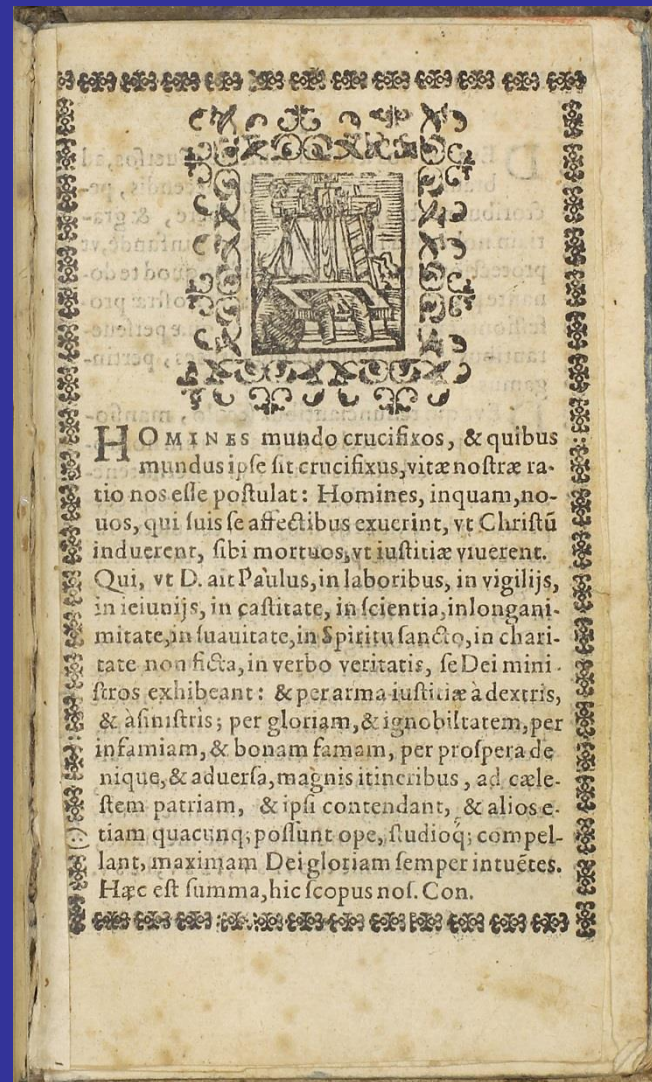 HOMINES mundo crucifixos, & quibus
mundus ipſe ſit crucifixus, vitæ noſtræ ra-
tio nos eſſe poſtulat: Homines, inquam, no-
uos, qui ſuis ſe affectibus exuerint, vt Chriſtū
induerent, ſibi mortuos, vt iuſtitiæ viuerent.
Qui, vt D. ait Paulus, in laboribus, in vigilijs,
in ieiunijs, in caſtitate, in ſcientia, inlongani-
mitate, in ſuauitate, in Spiritu ſancto, in chari-
tate non ficta, in verbo veritatis, ſe Dei mini-
ſtros exhibeant: & per arma iuſtitiæ à dextris,
& àſiniſtris; per gloriam, & ignobiltatem, per
infamiam, & bonam famam, per proſpera de
nique, & aduerſa, magnis itineribus, ad cæle-
ſtem patriam, & ipſi contendant, & alios e-
tiam quacunq; poſſunt ope, ſtudioq́; compel-
lant, maximam Dei gloriam ſemper intuētes.
Hæc eſt ſumma, hic ſcopus noſ. Con.